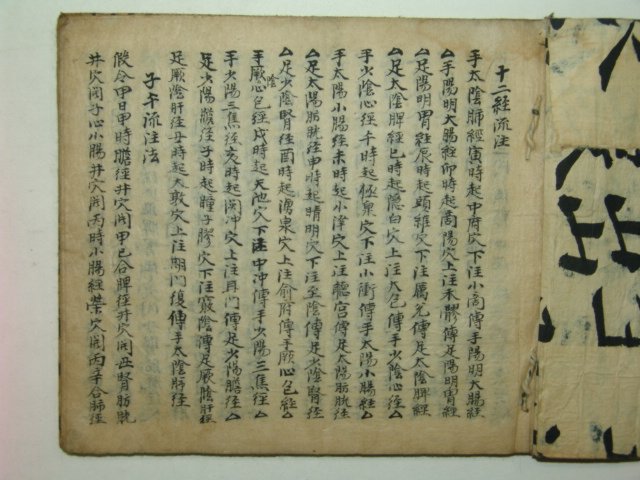 十二経流注
手太陰肺經寅時起中府穴下注小商傳手陽明大腸經
△手陽明大腸經卯時起商陽穴上注禾髎傳足陽明胃經
△足陽明胃經辰時起頭維穴下注厲兌傳足太陰脾經
△足太陰脾經巳時起隱白穴上注大包傳手少陰心徑△
手少陰心徑午時起極泉穴下注小衝傳手太陽小腸徑
手太陽小腸徑未時起小澤穴上注聽宮傳足太陽肪胱徑
△足太陽肪胱徑申時起睛明穴下注至陰傳足少陰腎徑
△足少陰腎徑酉時起湧泉穴上注俞府傳手厥陰心包經△
手厥心包徑戌時起天池穴下注中沖傳手少陽三焦徑△
手少陽三焦徑亥時起関沖穴上注耳門傳足少陽膽徑△
足少陽膽徑子時起瞳子髎穴下注竅陰傳足厥陰肝徑
足厥陰肝徑丑時起大敦穴上注期門復傳手太陰肺徑
子午流注法
假令甲日甲時膽徑井穴開甲己合脾徑井穴開丑腎肪胱
井穴開子心小腸井穴開丙時小腸經滎穴開丙辛合肺徑